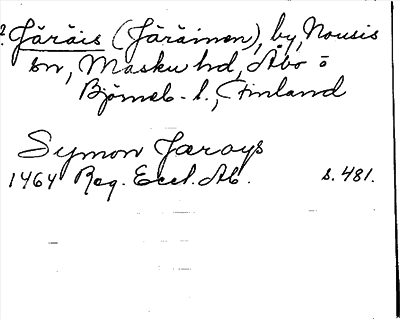 Järäis (Järäinen), by, Nousis
sn, Masku hd, Åbo o
Björneb. l., Finland
Symon Jærays
1464 Reg. Eccl. Ab. s. 481.